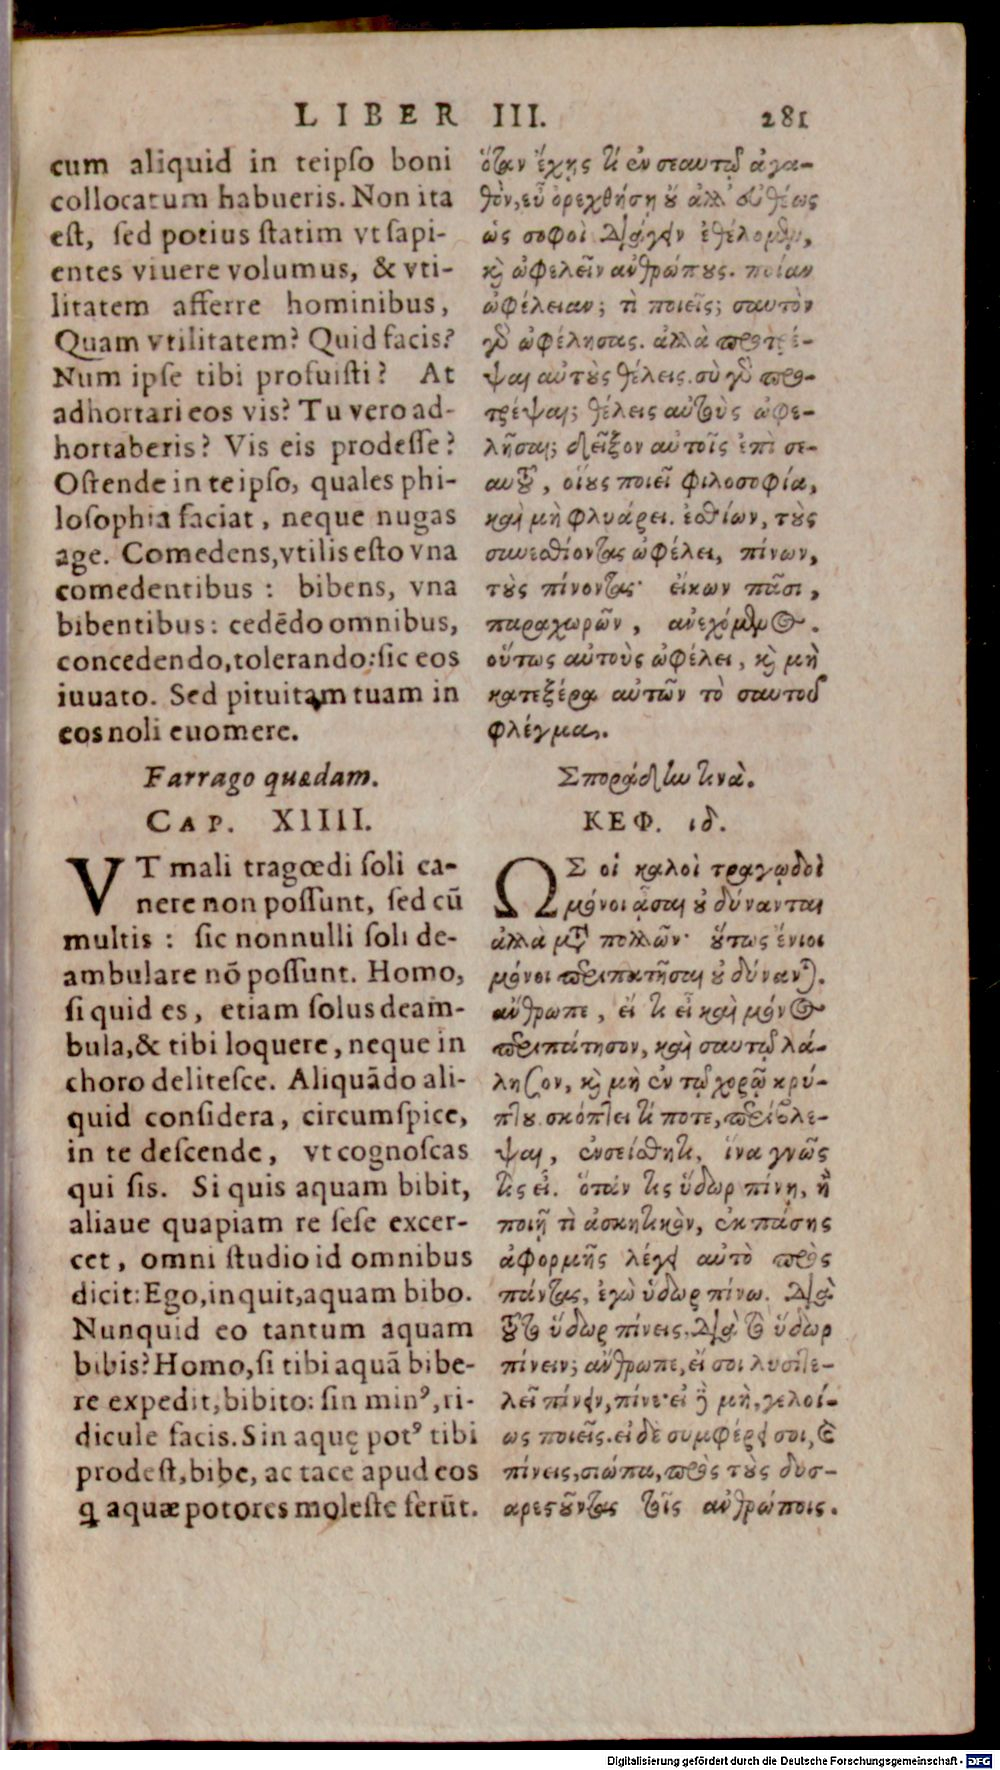 LIBER III. 281
cum aliquid in teipso boni
collocatum habueris. Non ita
est, sed potius statim vt sapi-
entes viuere volumus, & vti-
litatem afferre hominibus,
Quam vtilitatem? Quid facis?
Num ipse tibi profuisti? At
adhortari eos vis? Tu vero ad-
hortaberis? Vis eis prodesse?
Ostende in teipso, quales phi-
losophia faciat, neque nugas
age. Comedens, vtilis esto vna
comedentibus: bibens, vna
bibentibus: cedẽdo omnibus,
concedendo, tolerando: sic eos
iuuato. Sed pituitam tuam in
eos noli euomere.
Farrago quædam.
CAP. XIIII.
VT mali tragœdi soli ca-
nere non possunt, sed cũ
multis: sic nonnulli soli de-
ambulare nõ possunt. Homo,
si quid es, etiam solus deam-
bula, & tibi loquere, neque in
choro delitesce. Aliquãdo ali-
quid considera, circumspice,
in te descende, vt cognoscas
qui sis. Si quis aquam bibit,
aliaue quapiam re sese excer-
cet, omni studio id omnibus
dicit: Ego, inquit, aquam bibo.
Nunquid eo tantum aquam
bibis? Homo, si tibi aquã bibe-
re expedit, bibito: sin minꝰ, ri-
dicule facis. Sin aquę potꝰ tibi
prodest, bibe, ac tace apud eos
q aquæ potores moleste ferũt.
ὅταν ἔχῃς τὶ ἐν σεαυτῷ ἀγα-
θὸν, εὖ ὀρεχθήσῃ οὐ ἀλλ' εὐθέως
ὡς σοφοὶ διάγειν ἐθέλομεν,
καὶ ὠφελεῖν ἀνθρώπους. ποίαν
ὠφέλειαν; τὶ ποιεῖς; σαυτὸν
γὰρ ὠφέλησας. ἀλλὰ προτρέ-
ψαι αὐτοὺς θέλεις. σὺ γὰρ προ-
τρέψαι; θέλεις αὐτοὺς ὠφε-
λῆσαι; δεῖξον αὐτοῖς ἐπὶ σε-
αυτοῦ, οἵους ποιεῖ φιλοσοφία,
καὶ μὴ φλυάρει. ἐσθίων, τοὺς
συνεσθίοντας ὠφέλει, πίνων,
τοὺς πίνοντας· εἴκων πᾶσι,
παραχωρῶν, ἀνεχόμενος.
οὕτως αὐτοὺς ὠφέλει, καὶ μὴ
κατεξέρα αὐτῶν τὸ σαυτοῦ
φλέγμα.
Σποράδην τινὰ.
ΚΕΦ. ιδ.
ΩΣ οἱ καλοὶ τραγῳδοὶ
μόνοι ᾆσαι οὐ δύνανται
ἀλλὰ μετὰ πολλῶν· οὕτως ἔνιοι
μόνοι περιπατῆσαι οὐ δύνανται.
ἄνθρωπε, εἴ τι εἶ καὶ μόνος
περιπάτησον, καὶ σαυτῷ λά-
λησον, καὶ μὴ ἐν τῷ χορῷ κρύ-
πτου. σκόπτει τί ποτε, περίβλε-
ψαι, ἐνσείσθητι, ἵνα γνῶς
τίς εἶ. ὅταν τις ὕδωρ πίνῃ, ἢ
ποιῇ τὶ ἀσκητικὸν, ἐκ πάσης
ἀφορμῆς λέγει αὐτὸ πρὸς
πάντας, ἐγὼ ὕδωρ πίνω. διὰ
τοῦτο ὕδωρ πίνεις, διὰ τὸ ὕδωρ
πίνειν; ἄνθρωπε, εἴ σοι λυσιτε-
λεῖ πίνειν, πίνε· εἰ δὲ μὴ, γελοί-
ως ποιεῖς. εἰ δὲ συμφέρει σοι, καὶ
πίνεις, σιώπα, πρὸς τοὺς δυσ-
αρεστοῦντας τοῖς ἀνθρώποις.
Digitalisierung gefördert durch die Deutsche Forschungsgemeinschaft - DFG